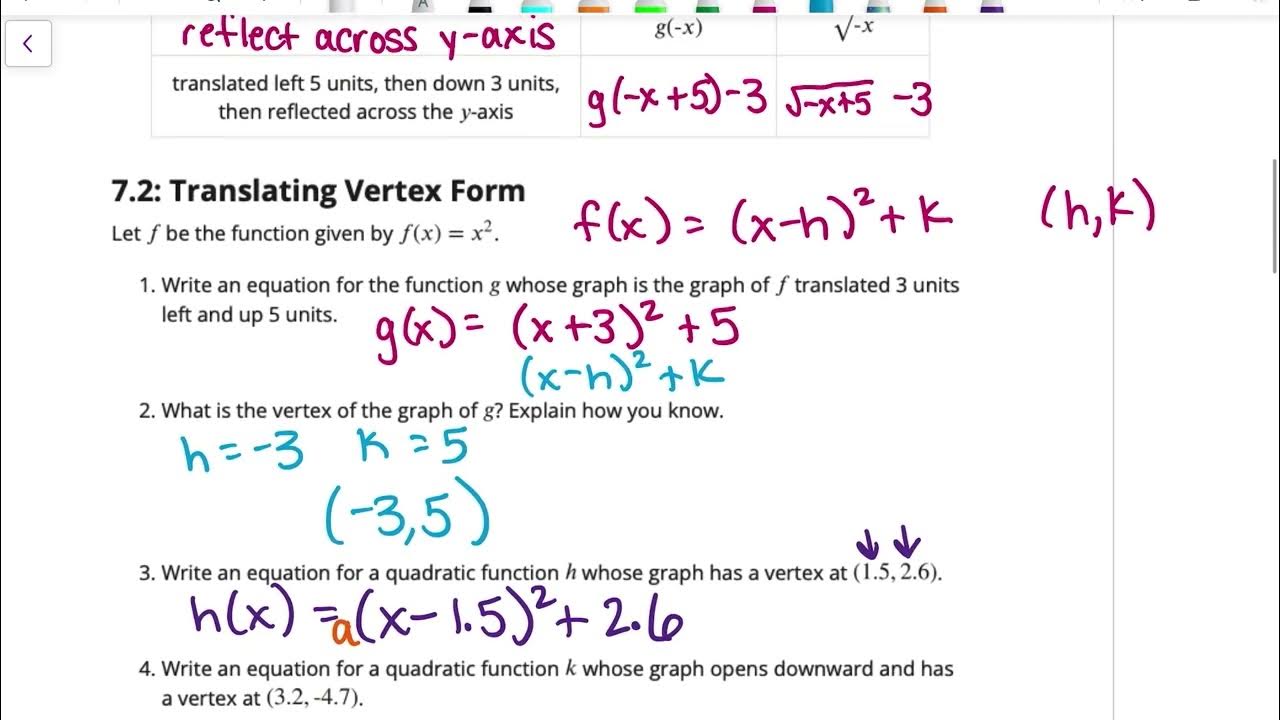 reflect across y-axis g(-x) √-x
translated left 5 units, then down 3 units,
then reflected across the y-axis
g(-x+5)-3 √-x+5 -3
7.2: Translating Vertex Form
f(x) = (x-h)² + k (h,k)
Let f be the function given by f(x) = x².
1. Write an equation for the function g whose graph is the graph of f translated 3 units
left and up 5 units.
g(x) = (x+3)² + 5
(x-h)² + k
2. What is the vertex of the graph of g? Explain how you know.
h = -3 k = 5
(-3,5)
↓ ↓
3. Write an equation for a quadratic function h whose graph has a vertex at (1.5, 2.6).
h(x) = a(x-1.5)² + 2.6
4. Write an equation for a quadratic function k whose graph opens downward and has
a vertex at (3.2, -4.7).